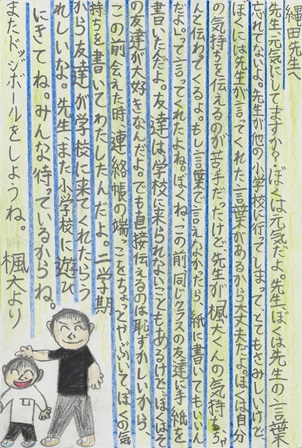 細田先生
先生元気にしてますか？ぼくは元気だよ。先生ぼくは先生の言葉
忘れてないよ。先生が他の小学校に行ってしまって、とてもさみしいけど
ぼくには先生が言ってくれた言葉があるから大丈夫だよ。ぼくは自分
の気持ちを伝えるのが苦手だったけど先生が「楓大くんの気持ちちゃ
んと伝わってくるよ。もし言葉で言えなかったら、紙に書いてもいいん
だよ。」って言ってくれたよね。ぼくね、この前、同じクラスの友達に手紙を
書いたんだよ。友達は学校に来られないこともあるけどぼくはそ
の友達が大好きなんだよ。でも直接伝えるのは恥ずかしいから、
この前会えた時連絡帳の端っこをちょっとやぶいてぼくの気
持ちを書いてわたしたんだよ。二学期
から友達が学校に来てくれたらう
れしいな。先生、また小学校に遊び
にきてね。みんな待っているからね。
またドッジボールをしようね。 楓大より